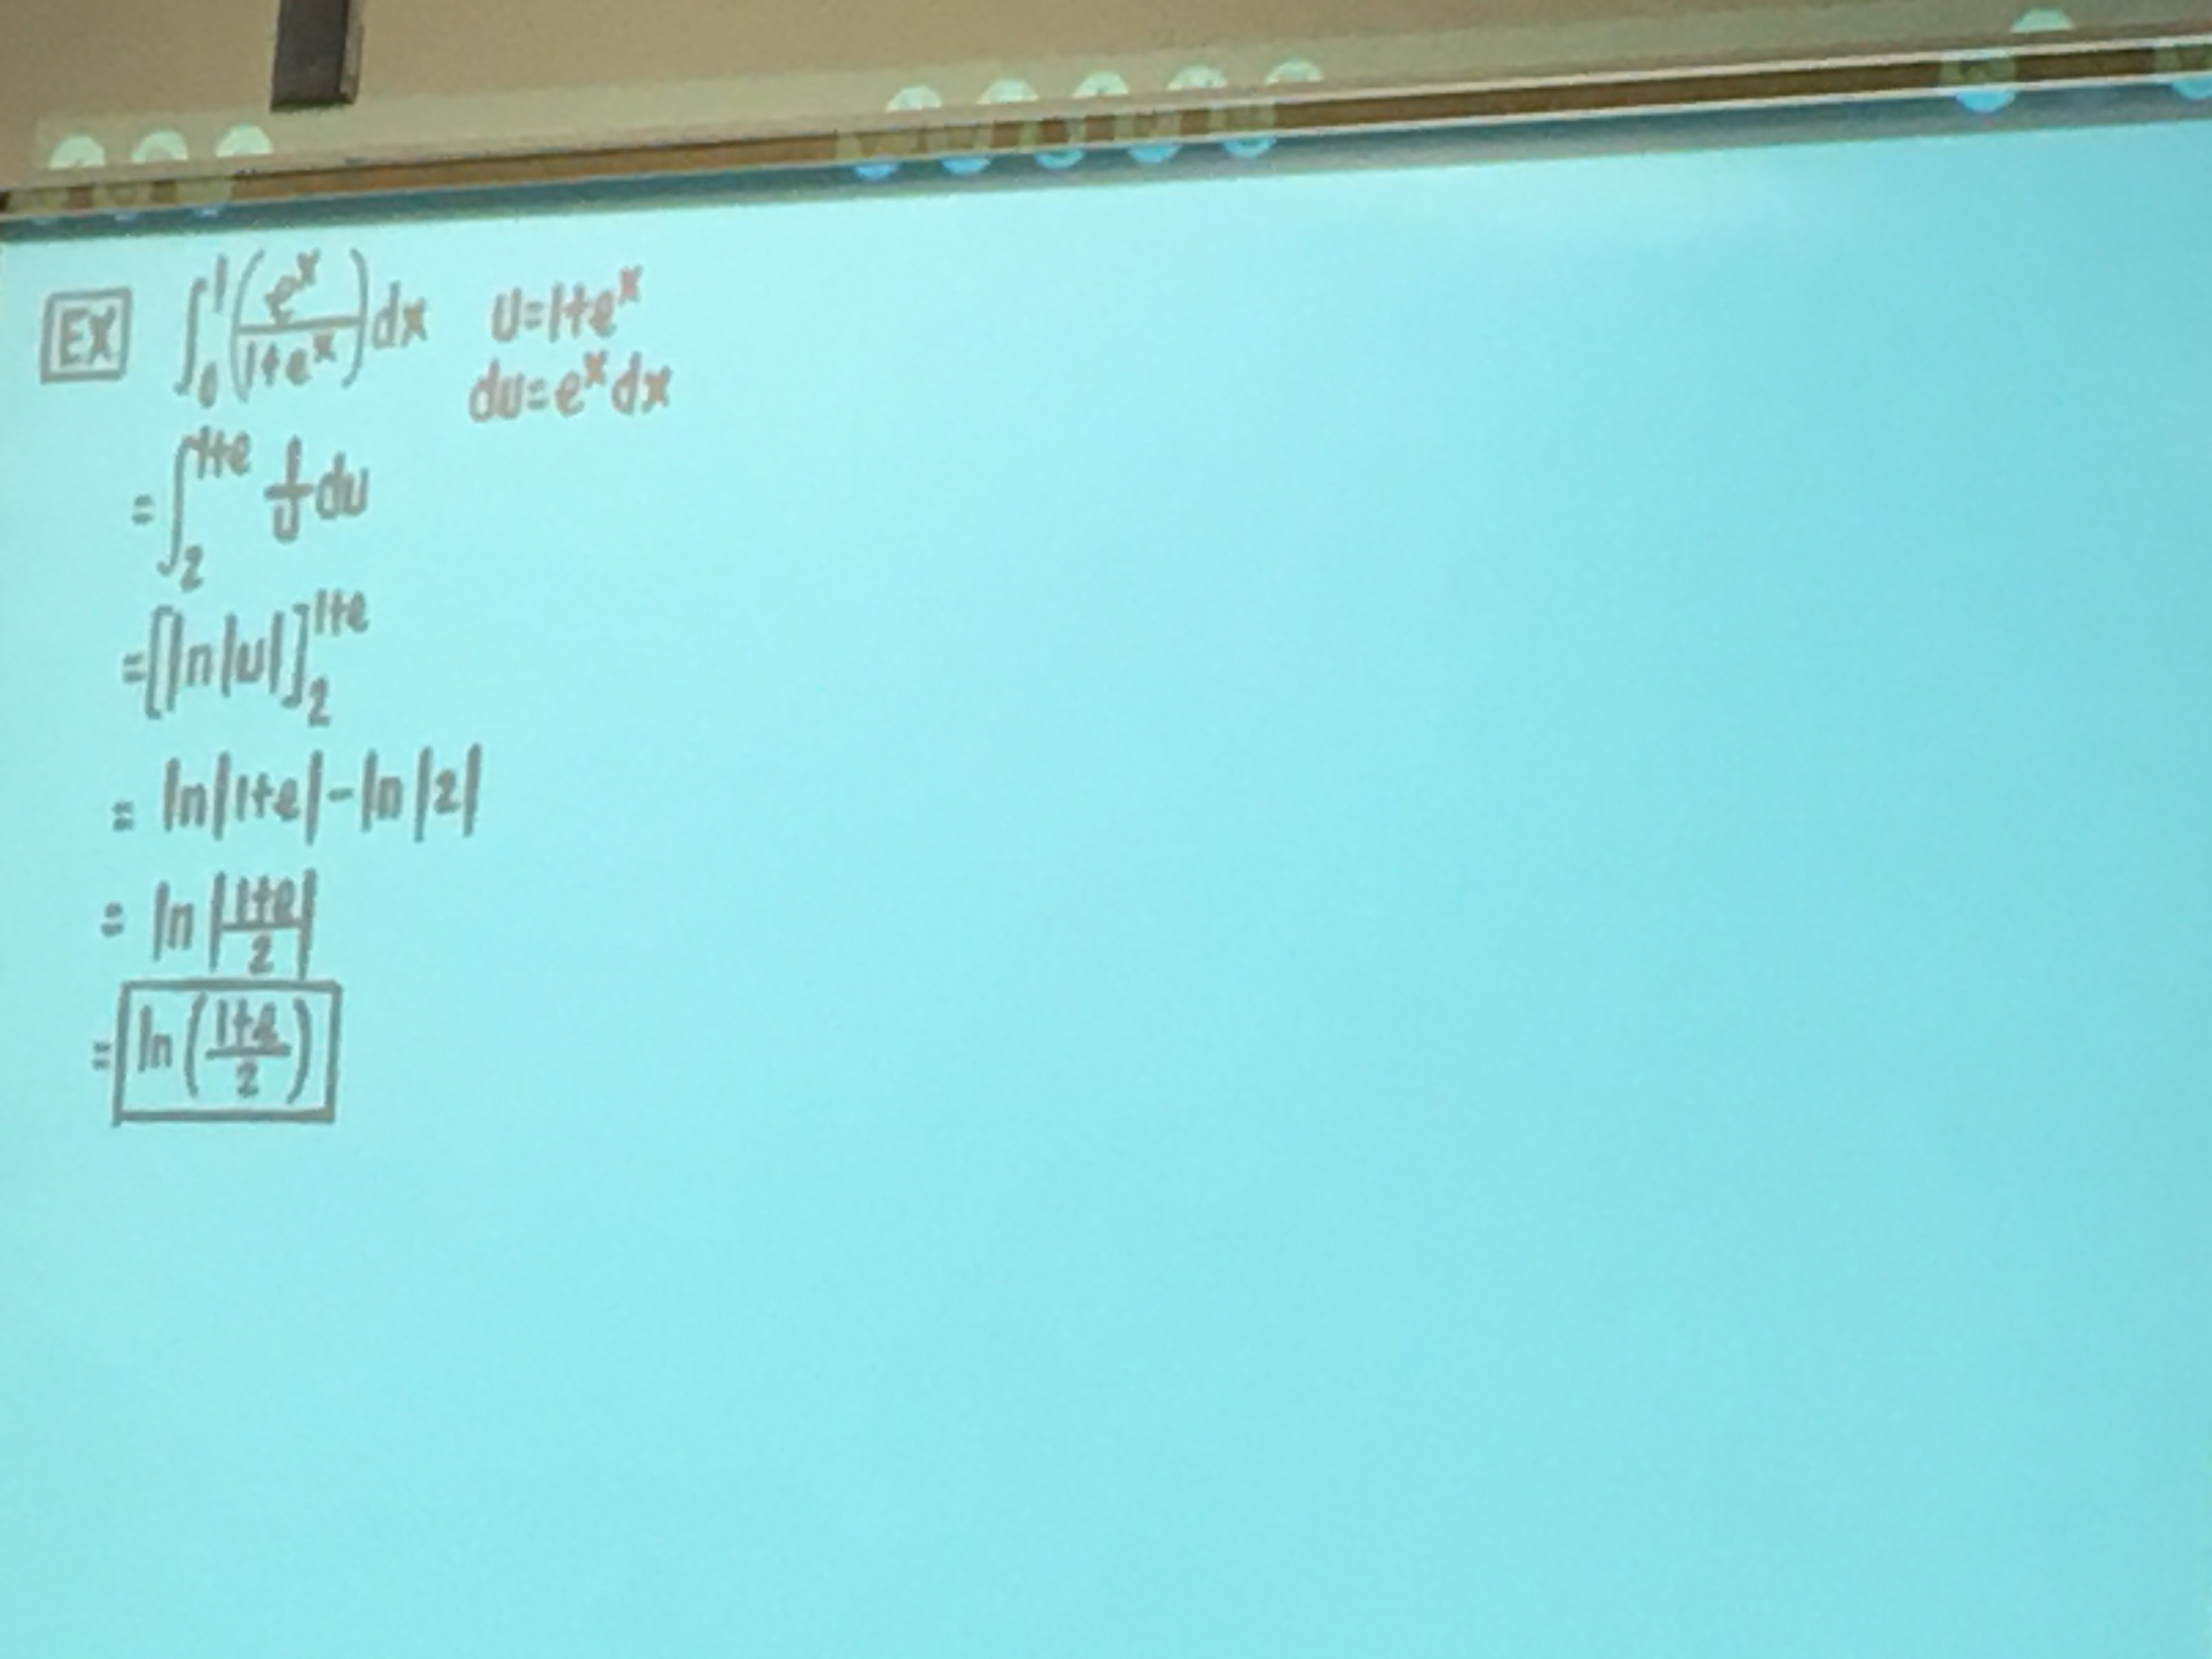 EX ∫₀¹ (e^x / 1+e^x) dx U=1+e^x
du=e^x dx
= ∫₂^(1+e) 1/U du
= [ln|u|]₂^(1+e)
= ln|1+e| - ln|2|
= ln |1+e / 2|
= ln (1+e / 2)